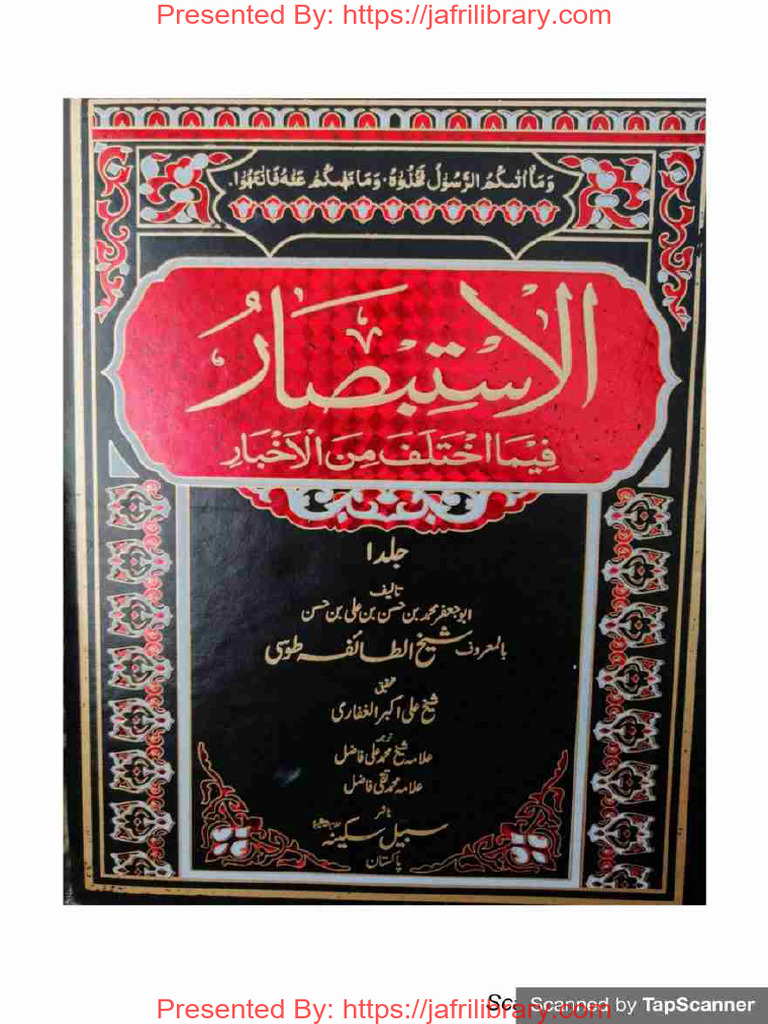 Presented By: https://jafrilibrary.com
وَمَا اٰتٰىكُمُ الرَّسُوْلُ فَخُذُوْهُ ۚ وَمَا نَهٰىكُمْ عَنْهُ فَانْتَهُوْا ۚ
الاِسْتِبْصَارُ
فِيْمَا اخْتَلَفَ مِنَ الْاَخْبَارِ
جلد ا
تالیف
ابو جعفر محمد بن حسن بن علی بن حسن
بالمعروف شیخ الطائفہ طوسی
تحقیق
شیخ علی اکبر الغفاری
ترجمہ
علامہ شیخ محمد علی فاضل
علامہ محمد تقی فاضل
ناشر
سبیل سکینہ
پاکستان
Scanned by TapScanner
Presented By: https://jafrilibrary.com